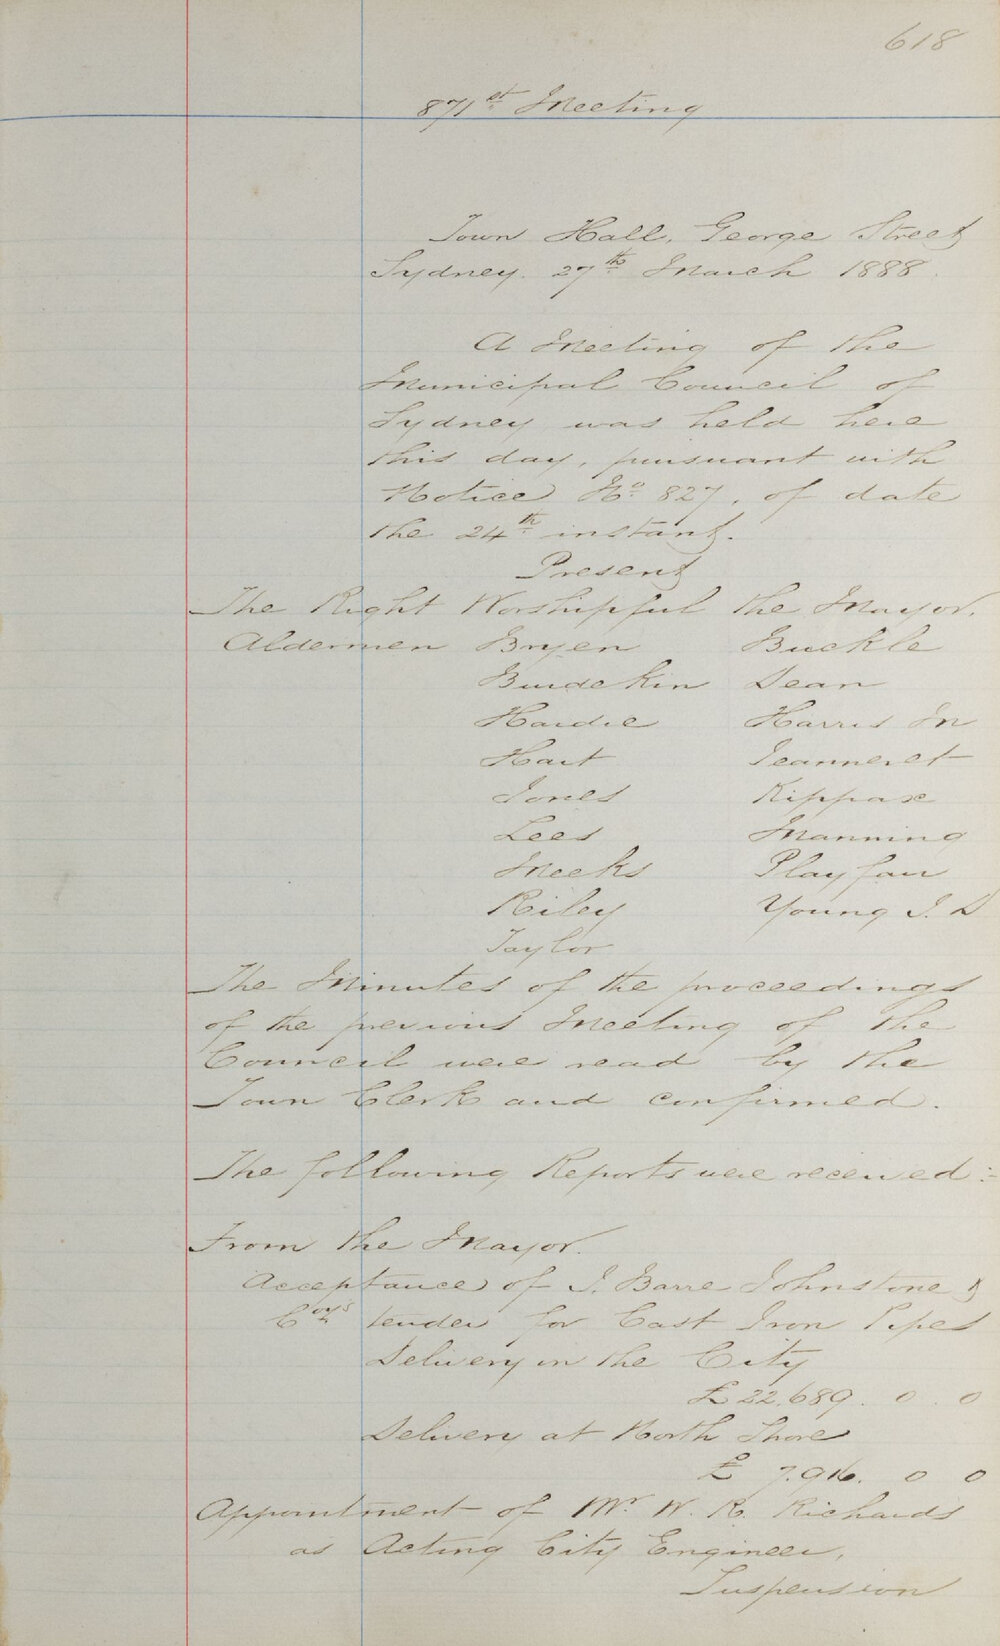 618
871st Meeting
Town Hall, George Street
Sydney. 27th March 1888.
A Meeting of the
Municipal Council of
Sydney was held here
this day, pursuant with
Notice No. 827, of date
the 24th instant.
Present
The Right Worshipful the Mayor.
Aldermen Bryen Buckle
Burdekin Dean
Hardie Harris Jn
Hart Jeanneret
Jones Kippax
Lees Manning
Meeks Playfair
Riley Young J. D
Taylor
The Minutes of the proceedings
of the previous Meeting of the
Council were read by the
Town Clerk and confirmed.
The following Reports were received :-
From the Mayor.
Acceptance of J. Barre Johnstone &
Coy's tender for Cast Iron Pipes
Delivery in the City
£22,689. 0. 0
Delivery at North Shore
£ 7.916. 0 0
Appointment of Mr W. R. Richards
as Acting City Engineer,
Suspension